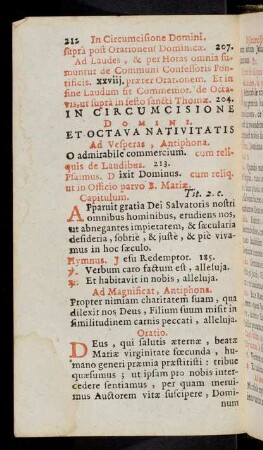 212 In Circumcisione Domini.
supra post Orationem Dominicæ. 207.
Ad Laudes, & per Horas omnia su-
muntur de Communi Confessoris Pon-
tificis. xxviij. præter Orationem. Et in
fine Laudum fit Commemor. de Octa-
vis, ut supra in festo sancti Thomæ. 204.
IN CIRCUMCISIONE
DOMINI.
ET OCTAVA NATIVITATIS
Ad Vesperas, Antiphona.
O admirabile commercium. cum reli-
quis de Laudibus. 213.
Psalmus. Dixit Dominus. cum reliq.
ut in Officio parvo B. Mariæ.
Capitulum. Tit. 2. c.
APparuit gratia Dei Salvatoris nostri
omnibus hominibus, erudiens nos,
ut abnegantes impietatem, & sæcularia
desideria, sobriè, & justè, & piè viva-
mus in hoc sæculo.
Hymnus. Jesu Redemptor. 185.
℣. Verbum caro factum est, alleluja.
℟. Et habitavit in nobis, alleluja.
Ad Magnificat, Antiphona.
Propter nimiam charitatem suam, qua
dilexit nos Deus, Filium suum misit in
similitudinem carnis peccati, alleluja.
Oratio.
DEus, qui salutis æternæ, beatæ
Mariæ virginitate fœcunda, hu-
mano generi præmia præstitisti: tribue
quæsumus; ut ipsam pro nobis inter-
cedere sentiamus, per quam merui-
mus Auctorem vitæ suscipere, Domi-
num